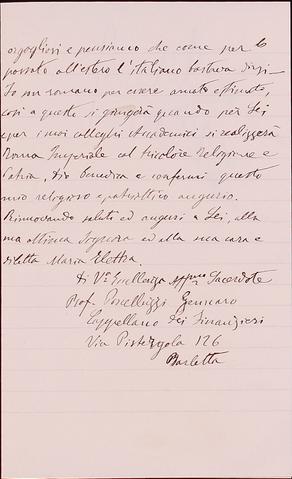 orgogliosi e pensiamo che come per lo
passato all'estero l'italiano bastava dirsi
Io son romano per essere amato e stimato,
così a questo si giungerà quando per Lei
e per i suoi colleghi Accademici si realizzerà
Roma Imperiale col tricolore Religione e
Patria, Dio benedica e confermi questo
mio religioso e patriottico augurio.
Rinnovando saluti ed auguri a Lei, alla
sua ottima Signora ed alla sua cara e
diletta Maria Elettra.
Di V. Eccellenza Sacerdote
Prof. Gennaro
Cappellano dei Finanzieri
Via Pistergola 126
Barletta